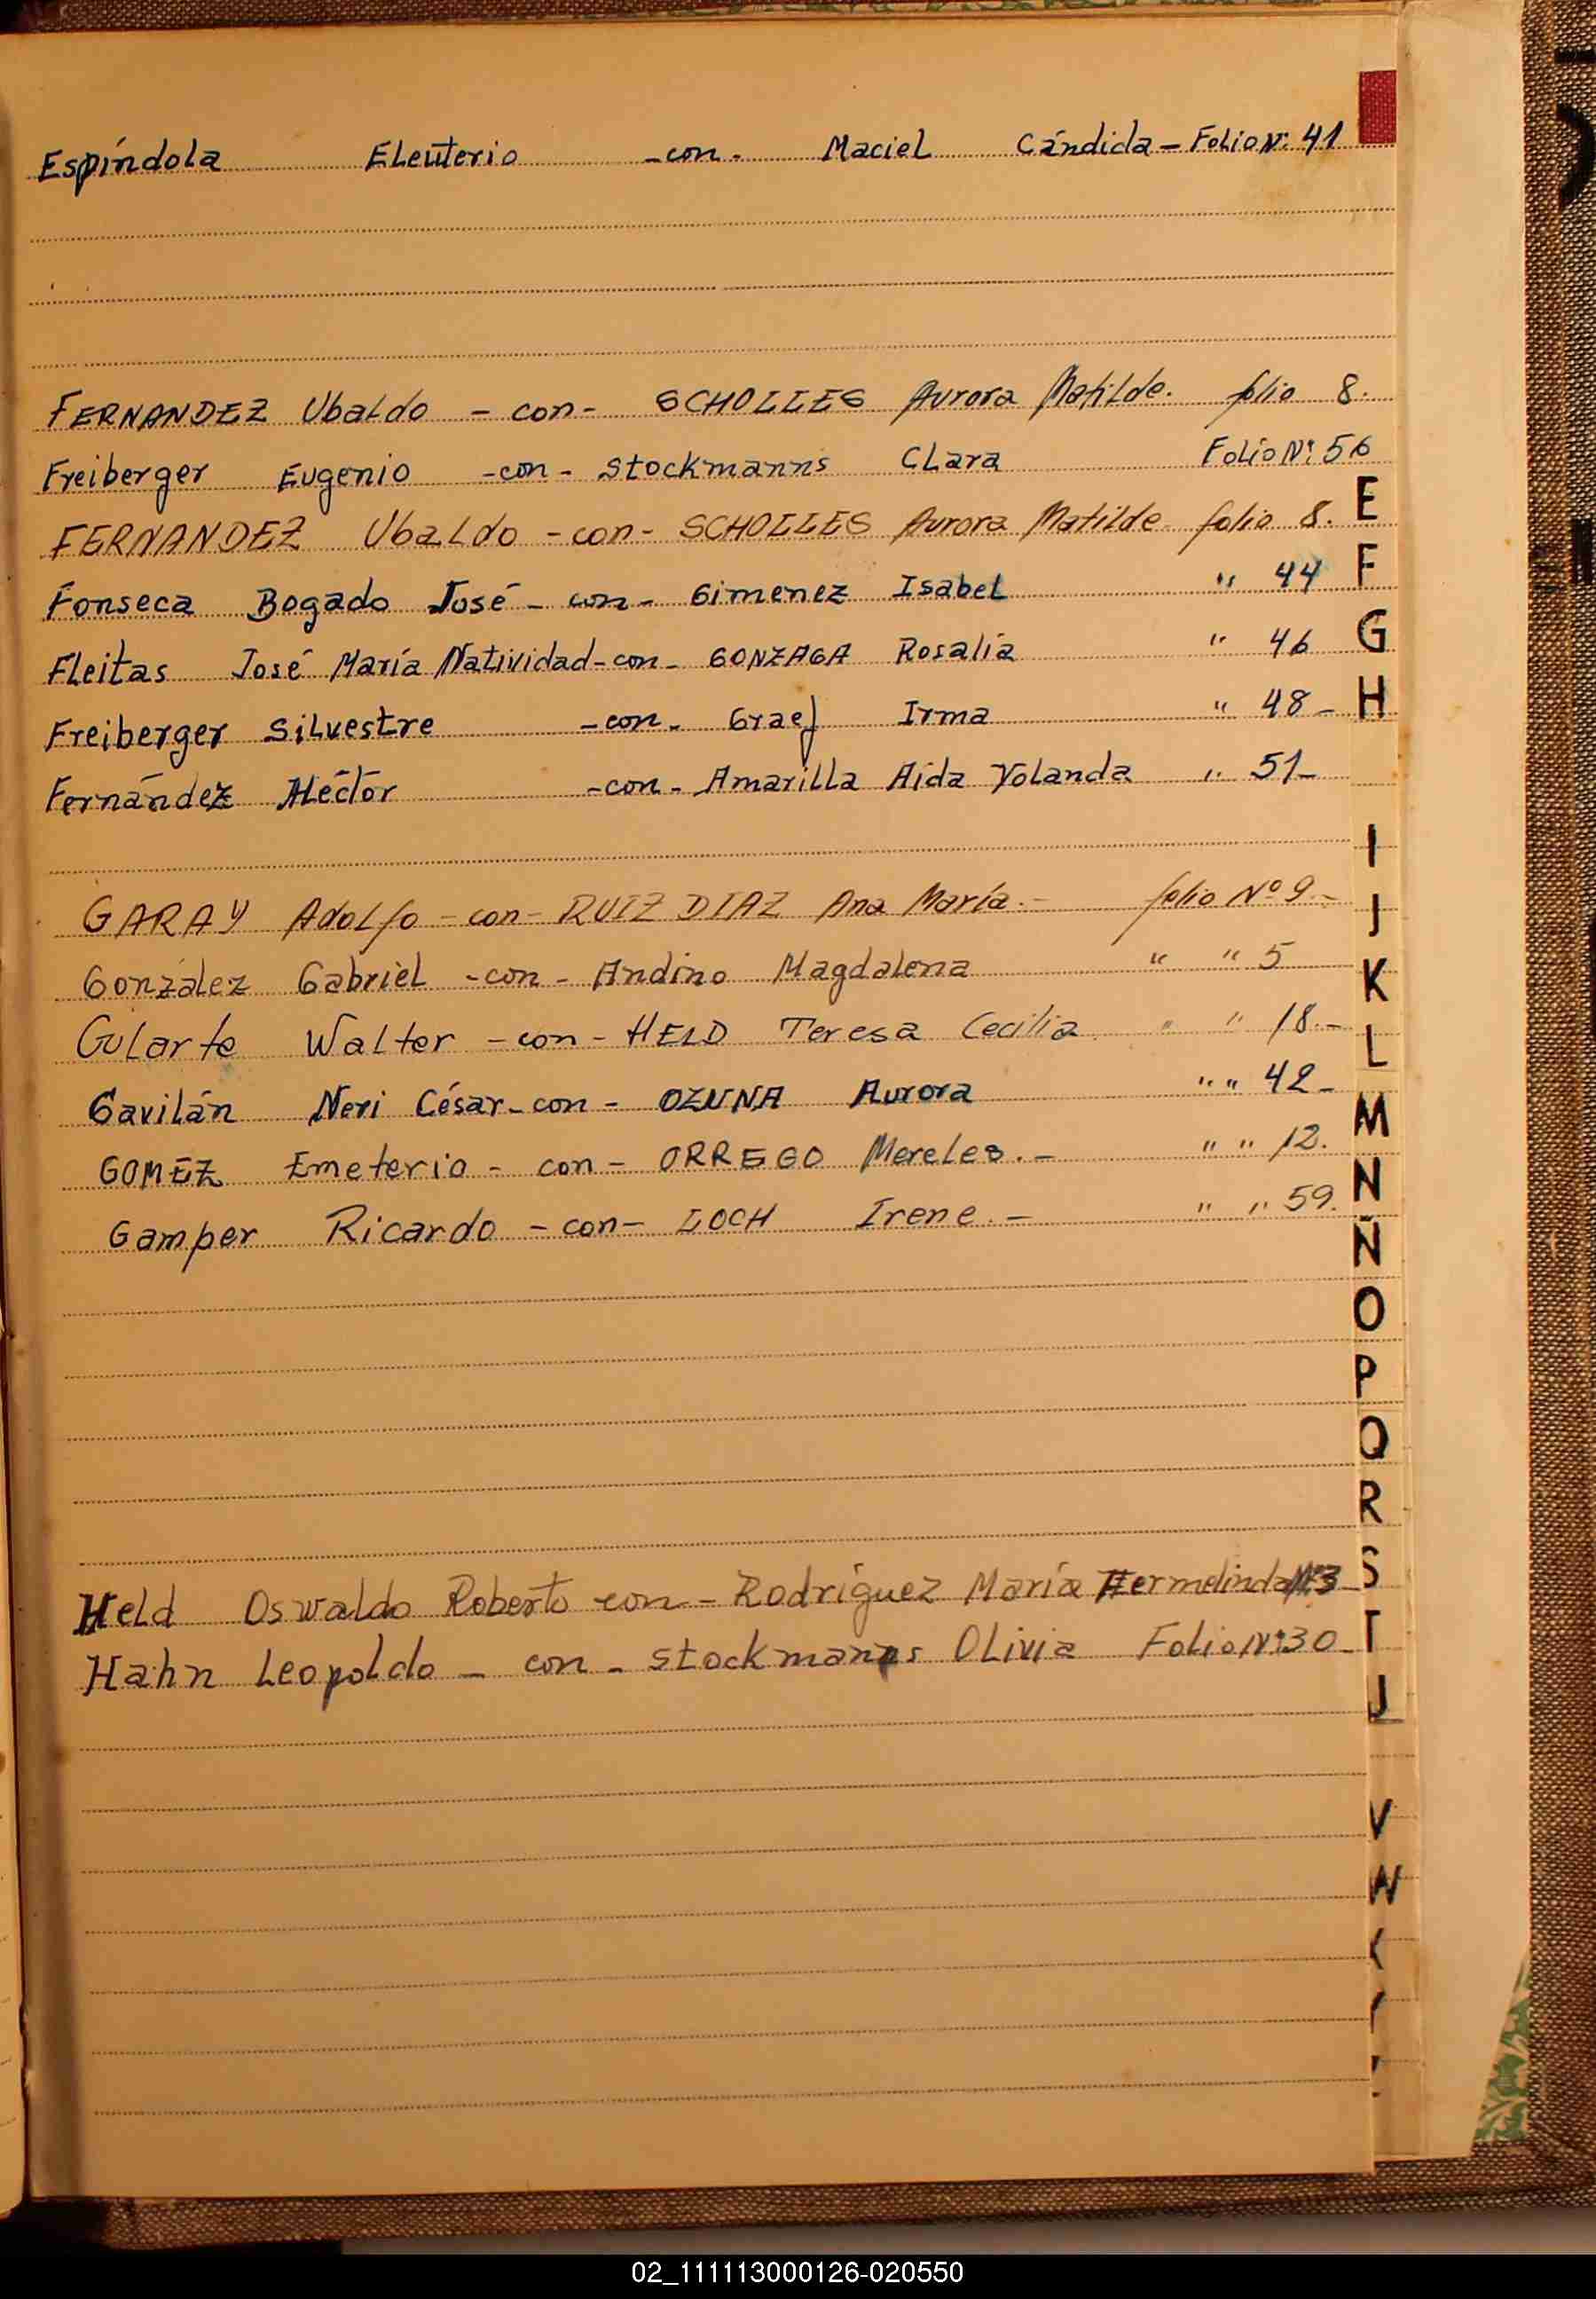 Espíndola Eleuterio -con- Maciel Cándida - Folio Nº: 41
FERNANDEZ Ubaldo - con - SCHOLLES Aurora Matilde. folio 8.
Freiberger Eugenio -con- Stockmanns Clara Folio Nº: 56
E
FERNANDEZ Ubaldo - con - SCHOLLES Aurora Matilde folio 8.
F
Fonseca Bogado José - con - Gimenez Isabel " 44
G
Fleitas José María Natividad - con - GONZAGA Rosalía " 46
H
Freiberger Silvestre - con - Graef Irma " 48 -
Fernández Héctor - con - Amarilla Aida Yolanda " 51 -
I
GARAY Adolfo - con - RUIZ DIAZ Ana María. - folio Nº 9. -
J
González Gabriel - con - Andino Magdalena " " 5
K
Gularte Walter - con - HELD Teresa Cecilia " " 18. -
L
Gavilán Neri César - con - OZUNA Aurora " " 42 -
M
GOMEZ Emeterio - con - ORREGO Mereles. - " " 12.
N
Gamper Ricardo - con - LOCH Irene. - " " 59.
Ñ
O
P
Q
R
S
Held Oswaldo Roberto con - Rodríguez María Hermelinda Nº 3
T
Hahn Leopoldo - con - Stockmanns Olivia Folio Nº: 30
U
V
W
02_111113000126-020550